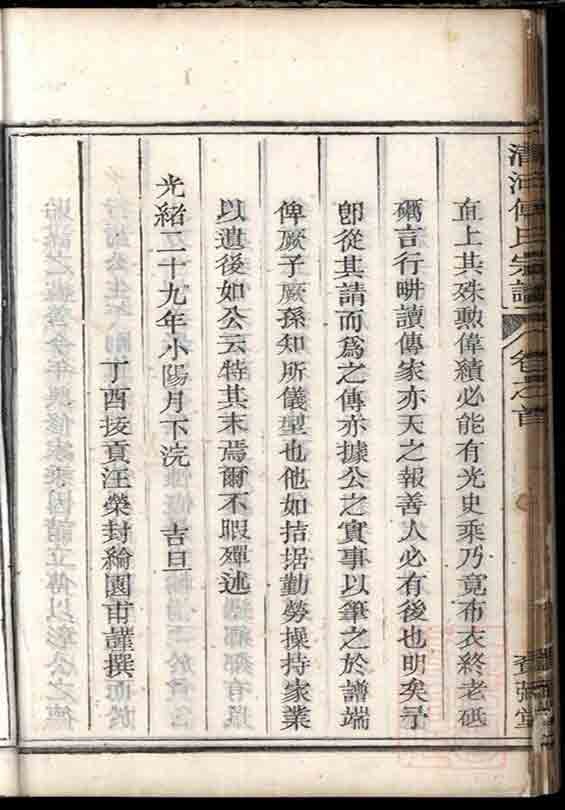 清河傅氏宗譜
卷之首
直上其殊勳偉績必能有光史乘乃竟布衣終老砥
礪言行畊讀傳家亦天之報善人必有後也明矣予
卽從其請而爲之傳亦據公之實事以筆之於譜端
俾厥子厥孫知所儀型也他如拮据勤勞操持家業
以遺後如公云特其末焉爾不暇殫述
光緒二十九年小陽月下浣 吉旦
丁酉拔貢汪榮封綸園甫謹撰